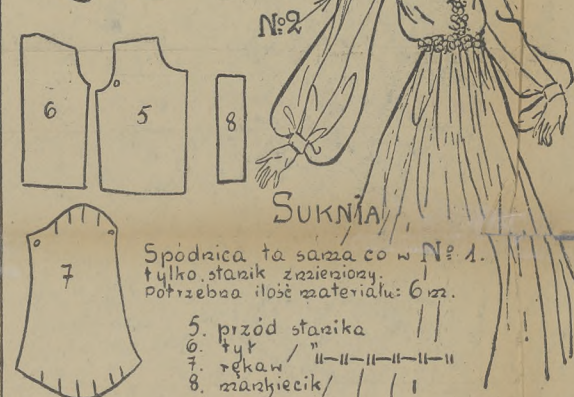 №2
6
5
8
SUKNIA
7
Spódnica ta sama co w № 1.
tylko stanik zmieniony.
Potrzebna ilość materiału: 6 m.
5. przód stanika
6. tył / "
7. rękaw / "—"—"—"—"—"
8. mankiecik /